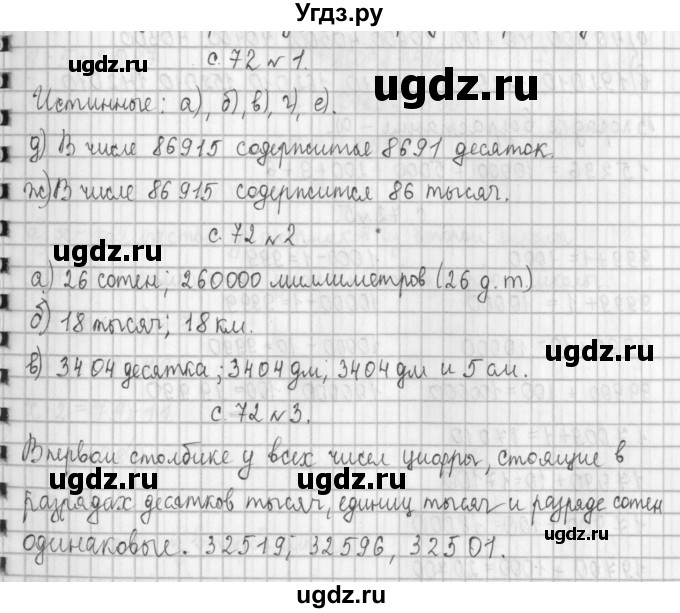 Угдз.ру
с. 72 № 1.
Истинные: а), б), в), г), е).
д) В числе 86915 содержится 8691 десяток.
ж) В числе 86915 содержится 86 тысяч.
с. 72 № 2
а) 26 сотен; 260000 миллиметров (26 д.т)
б) 18 тысяч; 18 км.
в) 3404 десятка; 3404 дм; 3404 дм и 5 см.
с. 72 № 3.
В первом столбике у всех чисел цифры, стоящие в
разрядах десятков тысяч, единиц тысяч и разряде сотен
одинаковые. 32519; 32596, 32501.
ugdz.ru
ugdz.ru
ugdz.ru
ugdz.ru
ugdz.ru
ugdz.ru
ugdz.ru
ugdz.ru
ugdz.ru
ugdz.ru
ugdz.ru
ugdz.ru